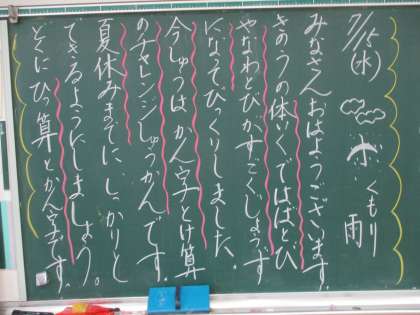 7/15(水) くもり 雨
みなさんおはようございます。
きのうの体いくではばとび
やなわとびがすごくじょうず
になってびっくりしました。
今しゅうはかん字とけ算
のチャレンジしゅうかんです。
夏休みまでに、しっかりと
できるようにしましょう。
とくにひっ算とかん字です。